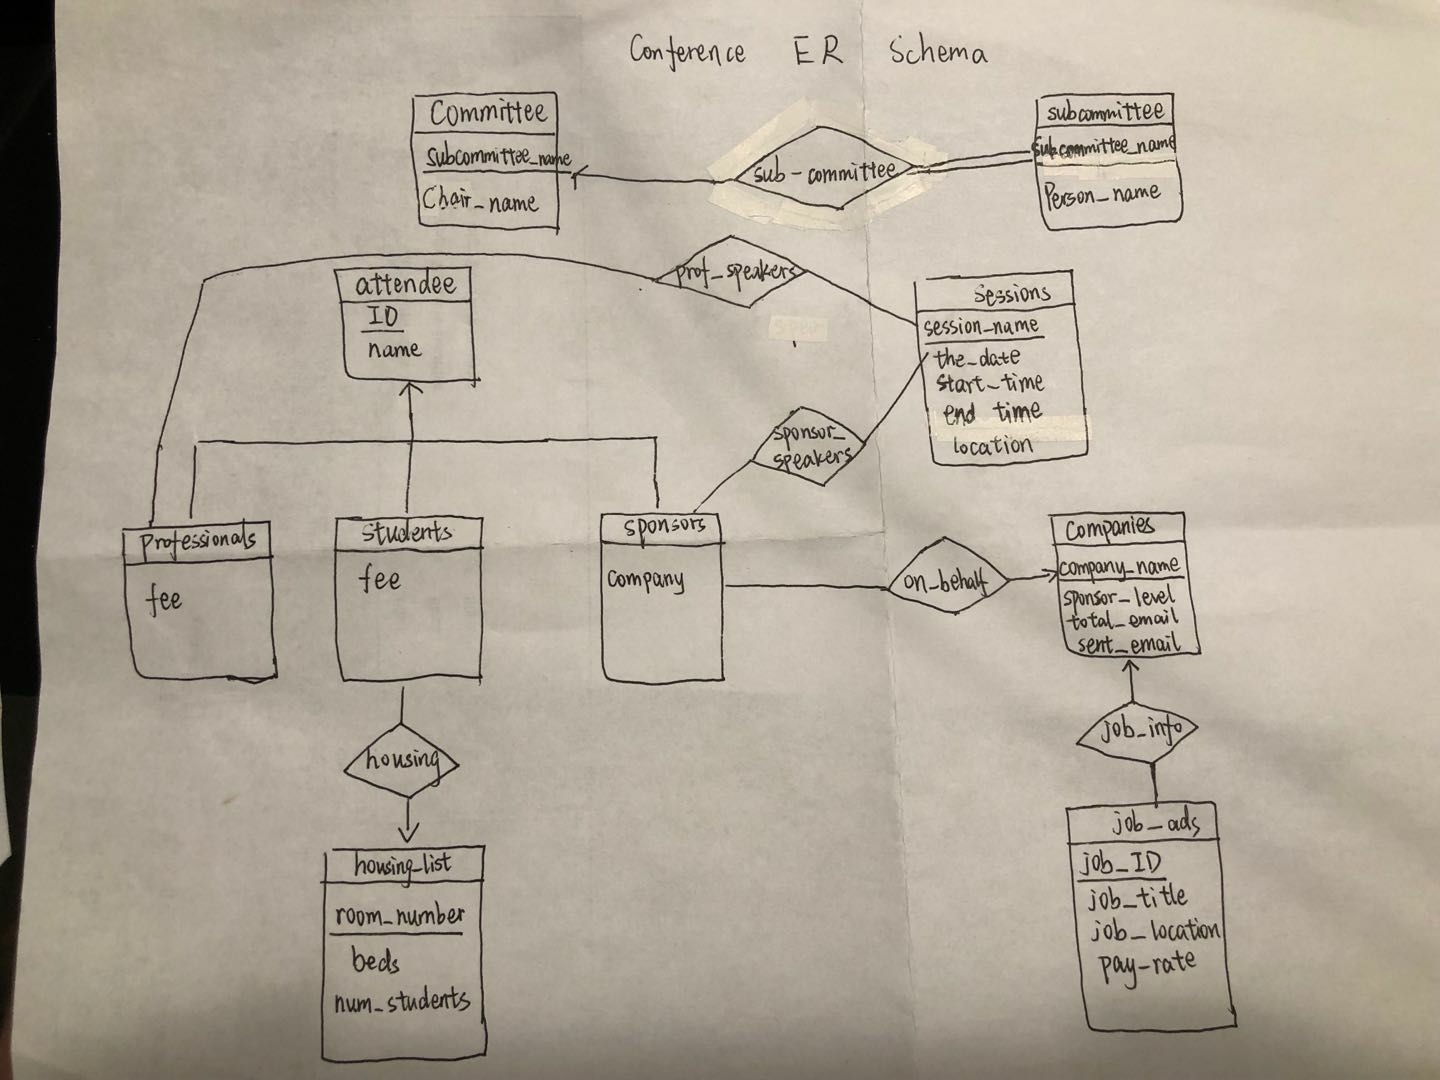 Conference ER Schema
Committee
subcommittee_name
Chair_name
sub-committee
subcommittee
subcommittee_name
Person_name
prof_speakers
attendee
ID
name
Sessions
session_name
the_date
start_time
end time
location
sponsor_
speakers
Professionals
fee
students
fee
sponsors
company
on_behalf
Companies
company_name
sponsor_level
total_email
sent_email
housing
job_info
housing_list
room_number
beds
num_students
job_ads
job_ID
job_title
job_location
pay-rate